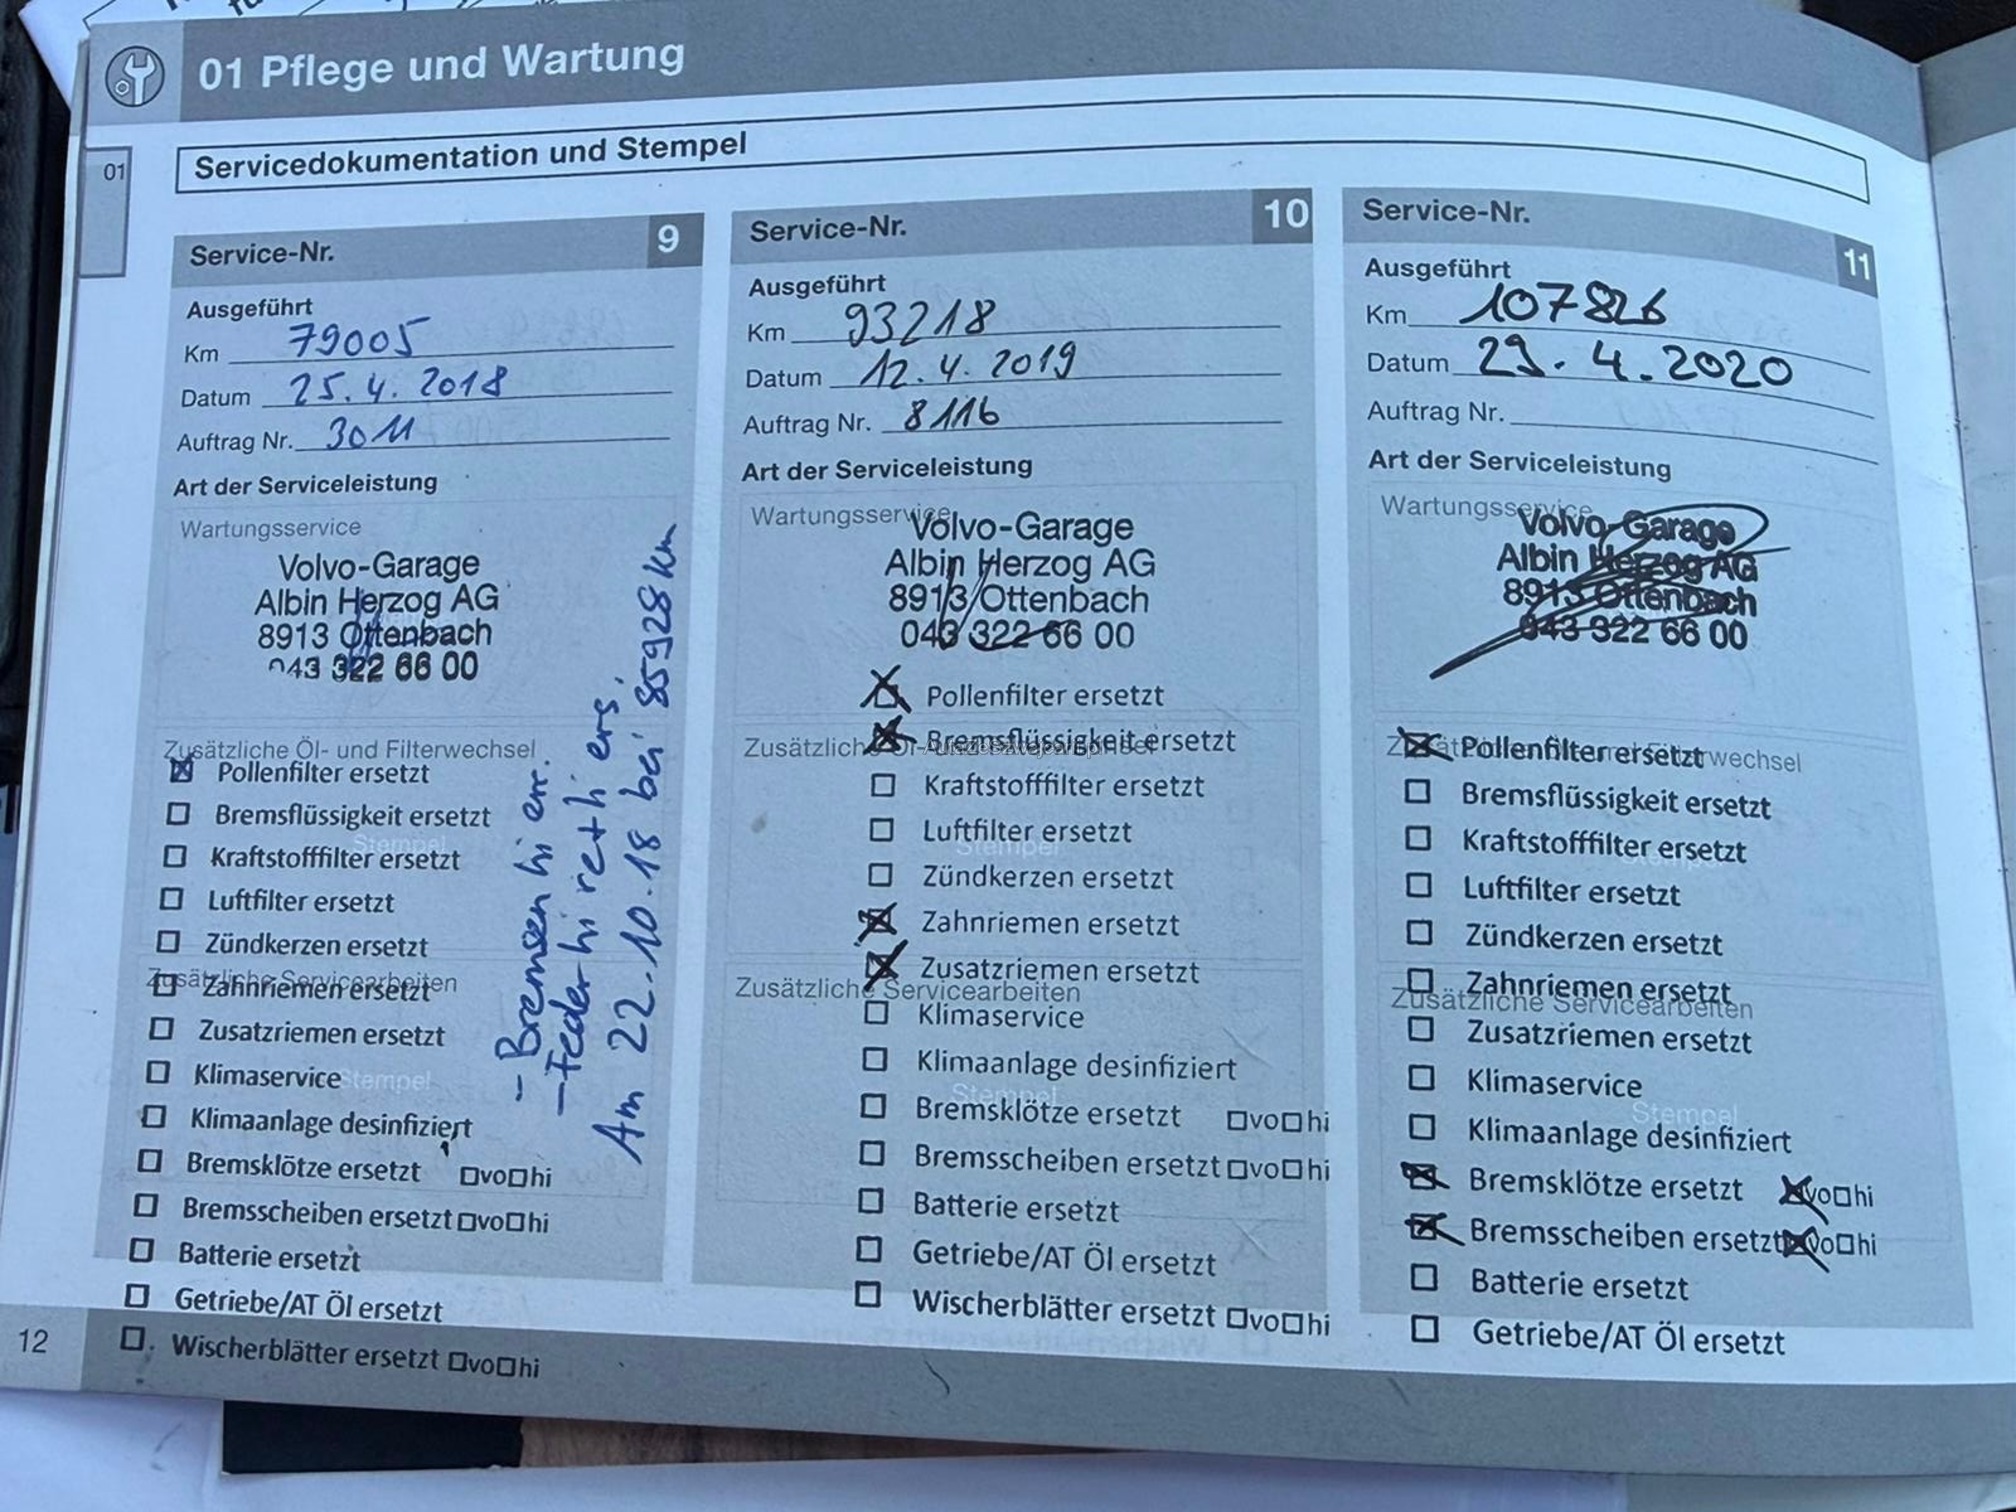 01 Pflege und Wartung
01
Servicedokumentation und Stempel
Service-Nr. 9
Ausgeführt
Km 79005
Datum 25.4.2018
Auftrag Nr. 3011
Art der Serviceleistung
Wartungsservice
Volvo-Garage
Albin Herzog AG
8913 Ottenbach
043 322 66 00
Zusätzliche Öl- und Filterwechsel
Pollenfilter ersetzt
Bremsflüssigkeit ersetzt
Stempel
Kraftstofffilter ersetzt
Luftfilter ersetzt
Zündkerzen ersetzt
Zusätzliche Servicearbeiten
Zahnriemen ersetzt
Zusatzriemen ersetzt
Klimaservice
Stempel
Klimaanlage desinfiziert
Bremsklötze ersetzt vo hi
Bremsscheiben ersetzt vo hi
Batterie ersetzt
Getriebe/AT Öl ersetzt
Wischerblätter ersetzt vo hi
- Bremsen hi err.
- Feder hi ret hi ers.
Am 22.10.18 bei 85928 km
Service-Nr. 10
Ausgeführt
Km 93218
Datum 12.4.2019
Auftrag Nr. 8116
Art der Serviceleistung
Wartungsservice
Volvo-Garage
Albin Herzog AG
8913 Ottenbach
043 322 66 00
Pollenfilter ersetzt
Zusätzliche Öl-
Bremsflüssigkeit ersetzt
Kraftstofffilter ersetzt
Luftfilter ersetzt
Stempel
Zündkerzen ersetzt
Zahnriemen ersetzt
Zusatzriemen ersetzt
Zusätzliche Servicearbeiten
Klimaservice
Klimaanlage desinfiziert
Stempel
Bremsklötze ersetzt vo hi
Bremsscheiben ersetzt vo hi
Batterie ersetzt
Getriebe/AT Öl ersetzt
Wischerblätter ersetzt vo hi
Service-Nr. 11
Ausgeführt
Km 107826
Datum 29.4.2020
Auftrag Nr.
Art der Serviceleistung
Wartungsservice
Volvo-Garage
Albin Herzog AG
8913 Ottenbach
043 322 66 00
Pollenfilter ersetzt
Bremsflüssigkeit ersetzt
Kraftstofffilter ersetzt
Stempel
Luftfilter ersetzt
Zündkerzen ersetzt
Zahnriemen ersetzt
Zusätzliche Servicearbeiten
Zusatzriemen ersetzt
Klimaservice
Stempel
Klimaanlage desinfiziert
Bremsklötze ersetzt vo hi
Bremsscheiben ersetzt vo hi
Batterie ersetzt
Getriebe/AT Öl ersetzt
12